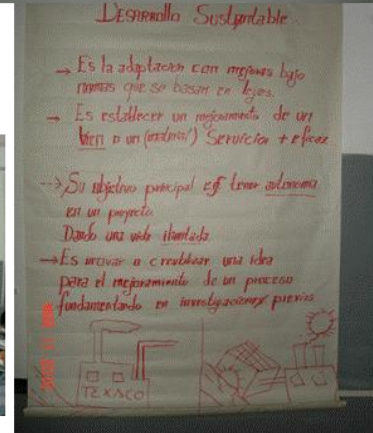 Desarrollo Sustentable
→ Es la adaptación con mejoras bajo
normas que se basan en leyes.
→ Es establecer un mejoramiento de un
bien o un (material) Servicio + eficaz
--> Su objetivo principal es tener autonomia
en un proyecto.
Dando una vida ilimitada.
→ Es innovar o establecer una idea
para el mejoramiento de un proceso
fundamentando en investigaciones previas
TEXACO